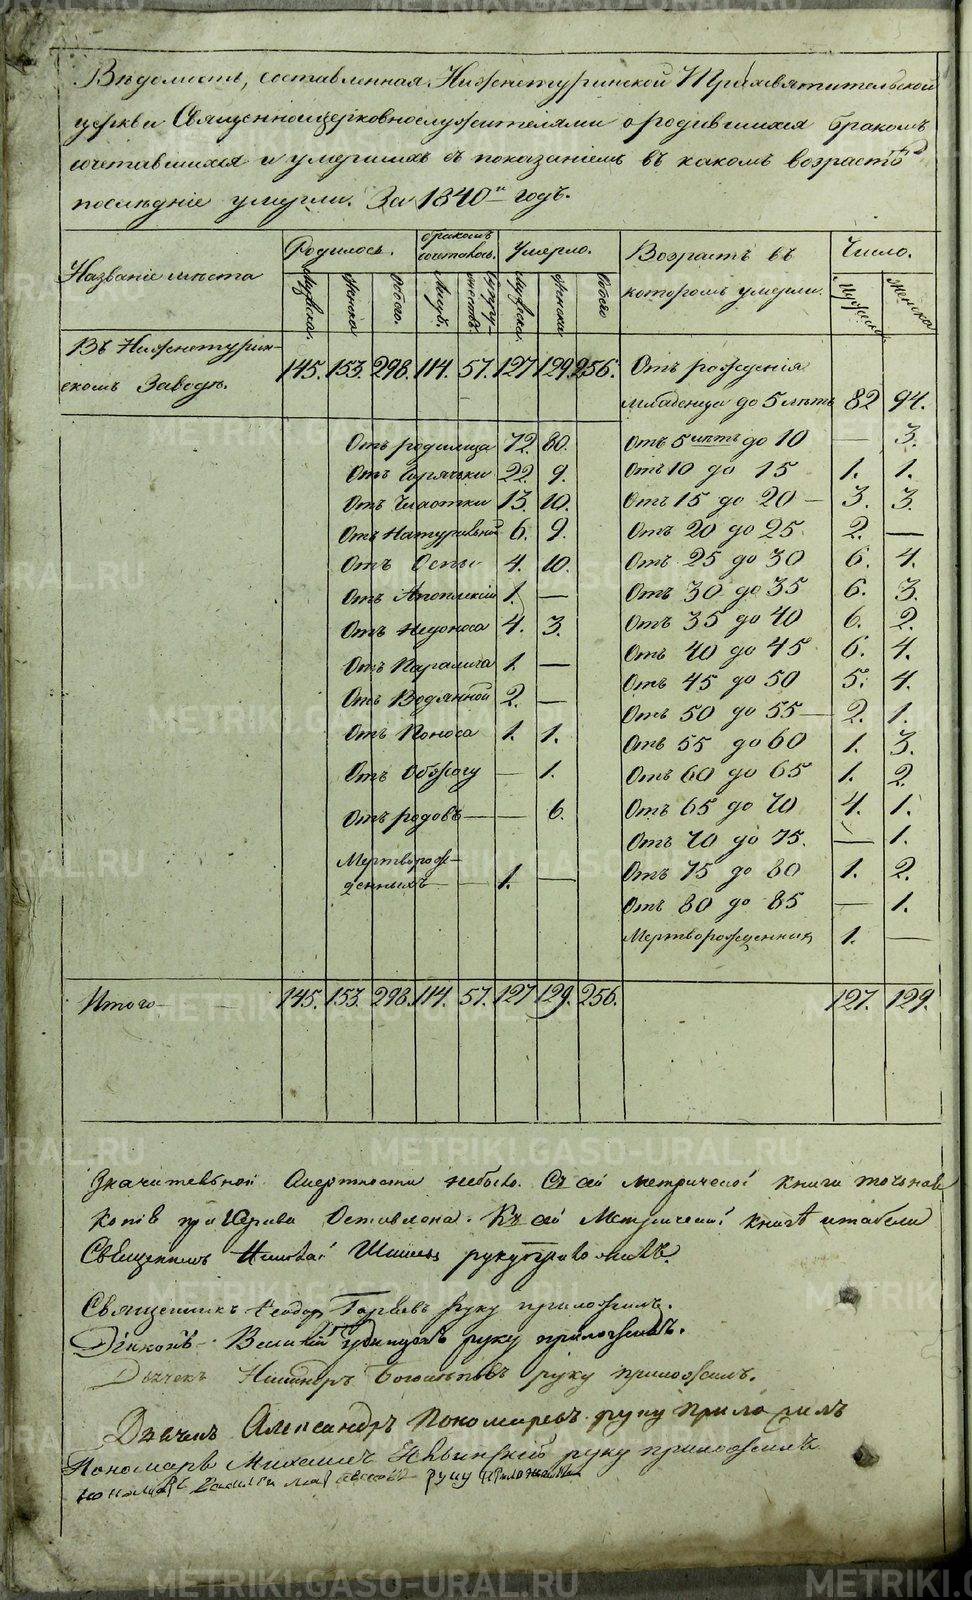 METRIKI.GASO-URAL.RU
Вѣдомость, составленная Нижнетуринской Трехсвятительской
церкви Священноцерковнослужителями о родившихся бракомъ
сочетавшихся и умершихъ съ показаніемъ въ какомъ возрастѣ
послѣдніе умерли. За 1840й годъ.
Названіе мѣста
Родилось.
бракомъ сочеталось.
Умерло.
Возрастъ въ
которомъ умерли.
Число.
Мужска. Женска Обоего. Мужска Женска Обоего Мужска Женска
Въ Нижнетурин-
скомъ Заводѣ. 145. 153. 298. 114. 57. 127 129. 256. Отъ рожденія
младенца до 5 лѣтъ 82 94.
Отъ родимца 72. 80. Отъ 5 лѣтъ до 10 — 3.
Отъ Горячки 22. 9. Отъ 10 до 15 1. 1.
Отъ Чахотки 13. 10. Отъ 15 до 20 — 3. 3.
Отъ Натуральной 6. 9. Отъ 20 до 25. 2. —
Отъ Оспы 4. 10. Отъ 25 до 30 6. 4.
Отъ Апоплексіи 1. — Отъ 30 до 35 6. 3.
Отъ Недоноса 4. 3. Отъ 35 до 40 6. 2.
Отъ Паралича 1. — Отъ 40 до 45 6. 4.
Отъ Водянной 2. — Отъ 45 до 50 5. 4.
Отъ Поноса 1. 1. Отъ 50 до 55 — 2. 1.
Отъ 55 до 60 1. 3.
Отъ Обжогу — 1. Отъ 60 до 65 1. 2.
Отъ родовъ — — 6. Отъ 65 до 70 4. 1.
Отъ 70 до 75. — 1.
Мертворож-
денныхъ — — 1. — Отъ 75 до 80 1. 2.
Отъ 80 до 85 — 1.
Мертворожденник 1. —
Итого — 145. 153. 298. 114. 57. 127 129. 256. 127. 129.
Значительной смертности небыло. Съ сей метрической книги точная
копія при Церкви Оставлена. Къ сей Метрической книгѣ и табели
Священникъ Николай руку приложилъ.
Священникъ руку приложилъ.
Діаконъ Василій руку приложилъ.
Дьячекъ руку приложилъ.
Дьячекъ Александръ Пономаревъ руку приложилъ
Пономарь Михаилъ руку приложилъ
пономарь Василій руку приложилъ